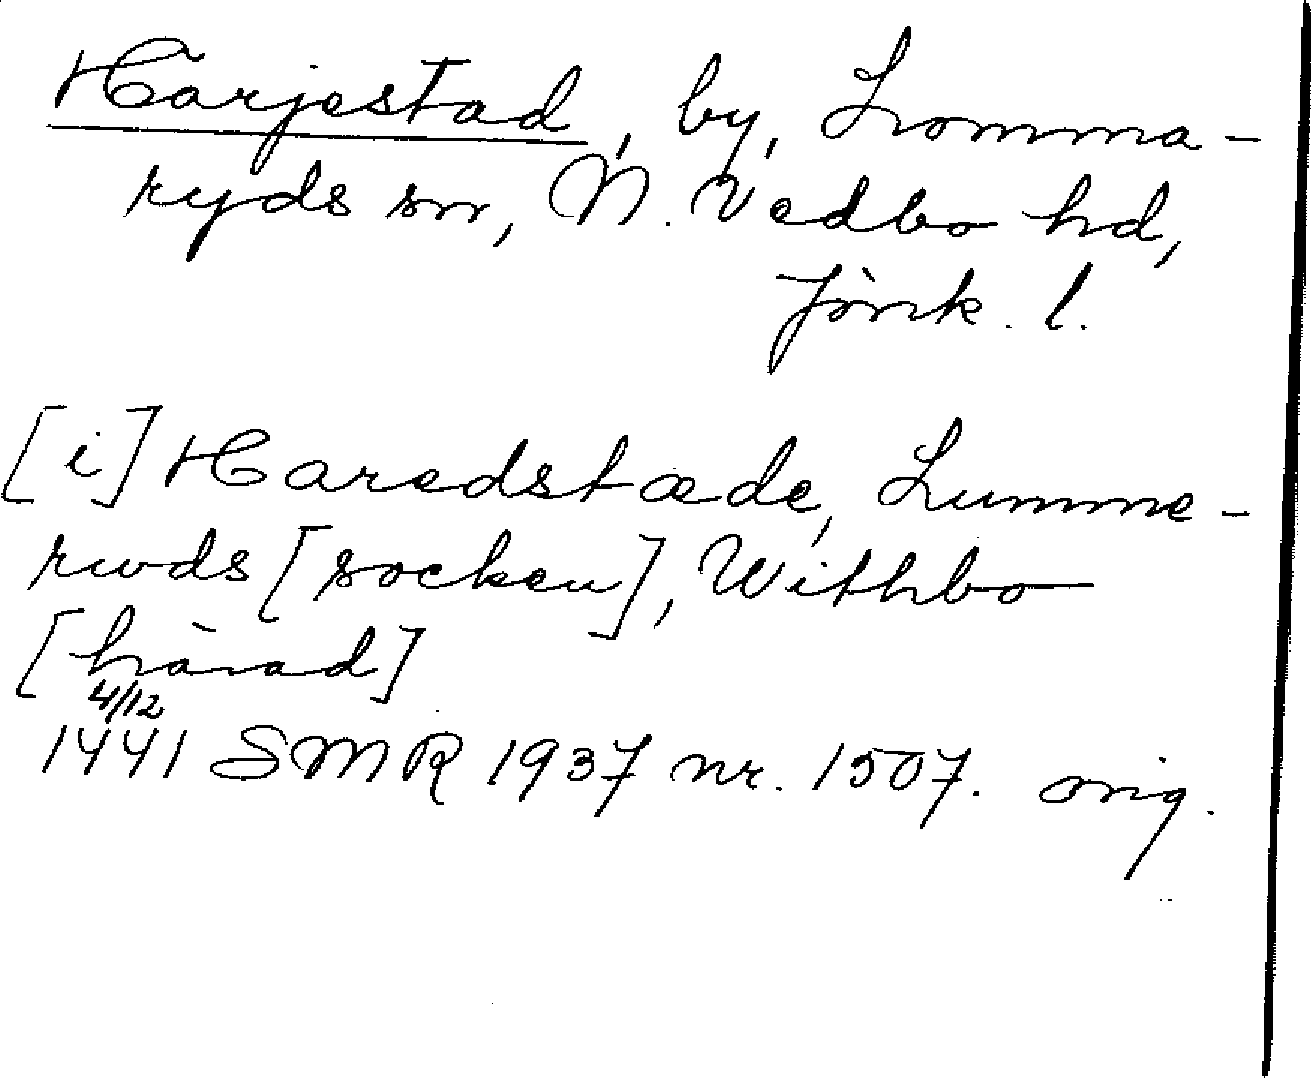 Härjestad, by, Lomma-
ryds sn, N. Vedbo hd,
Jönk. l.
[i] Haredstæde, Lumme-
rwds [socken], Withbo
[härad]
4/12
1441 SMR 1937 nr. 1507. orig.